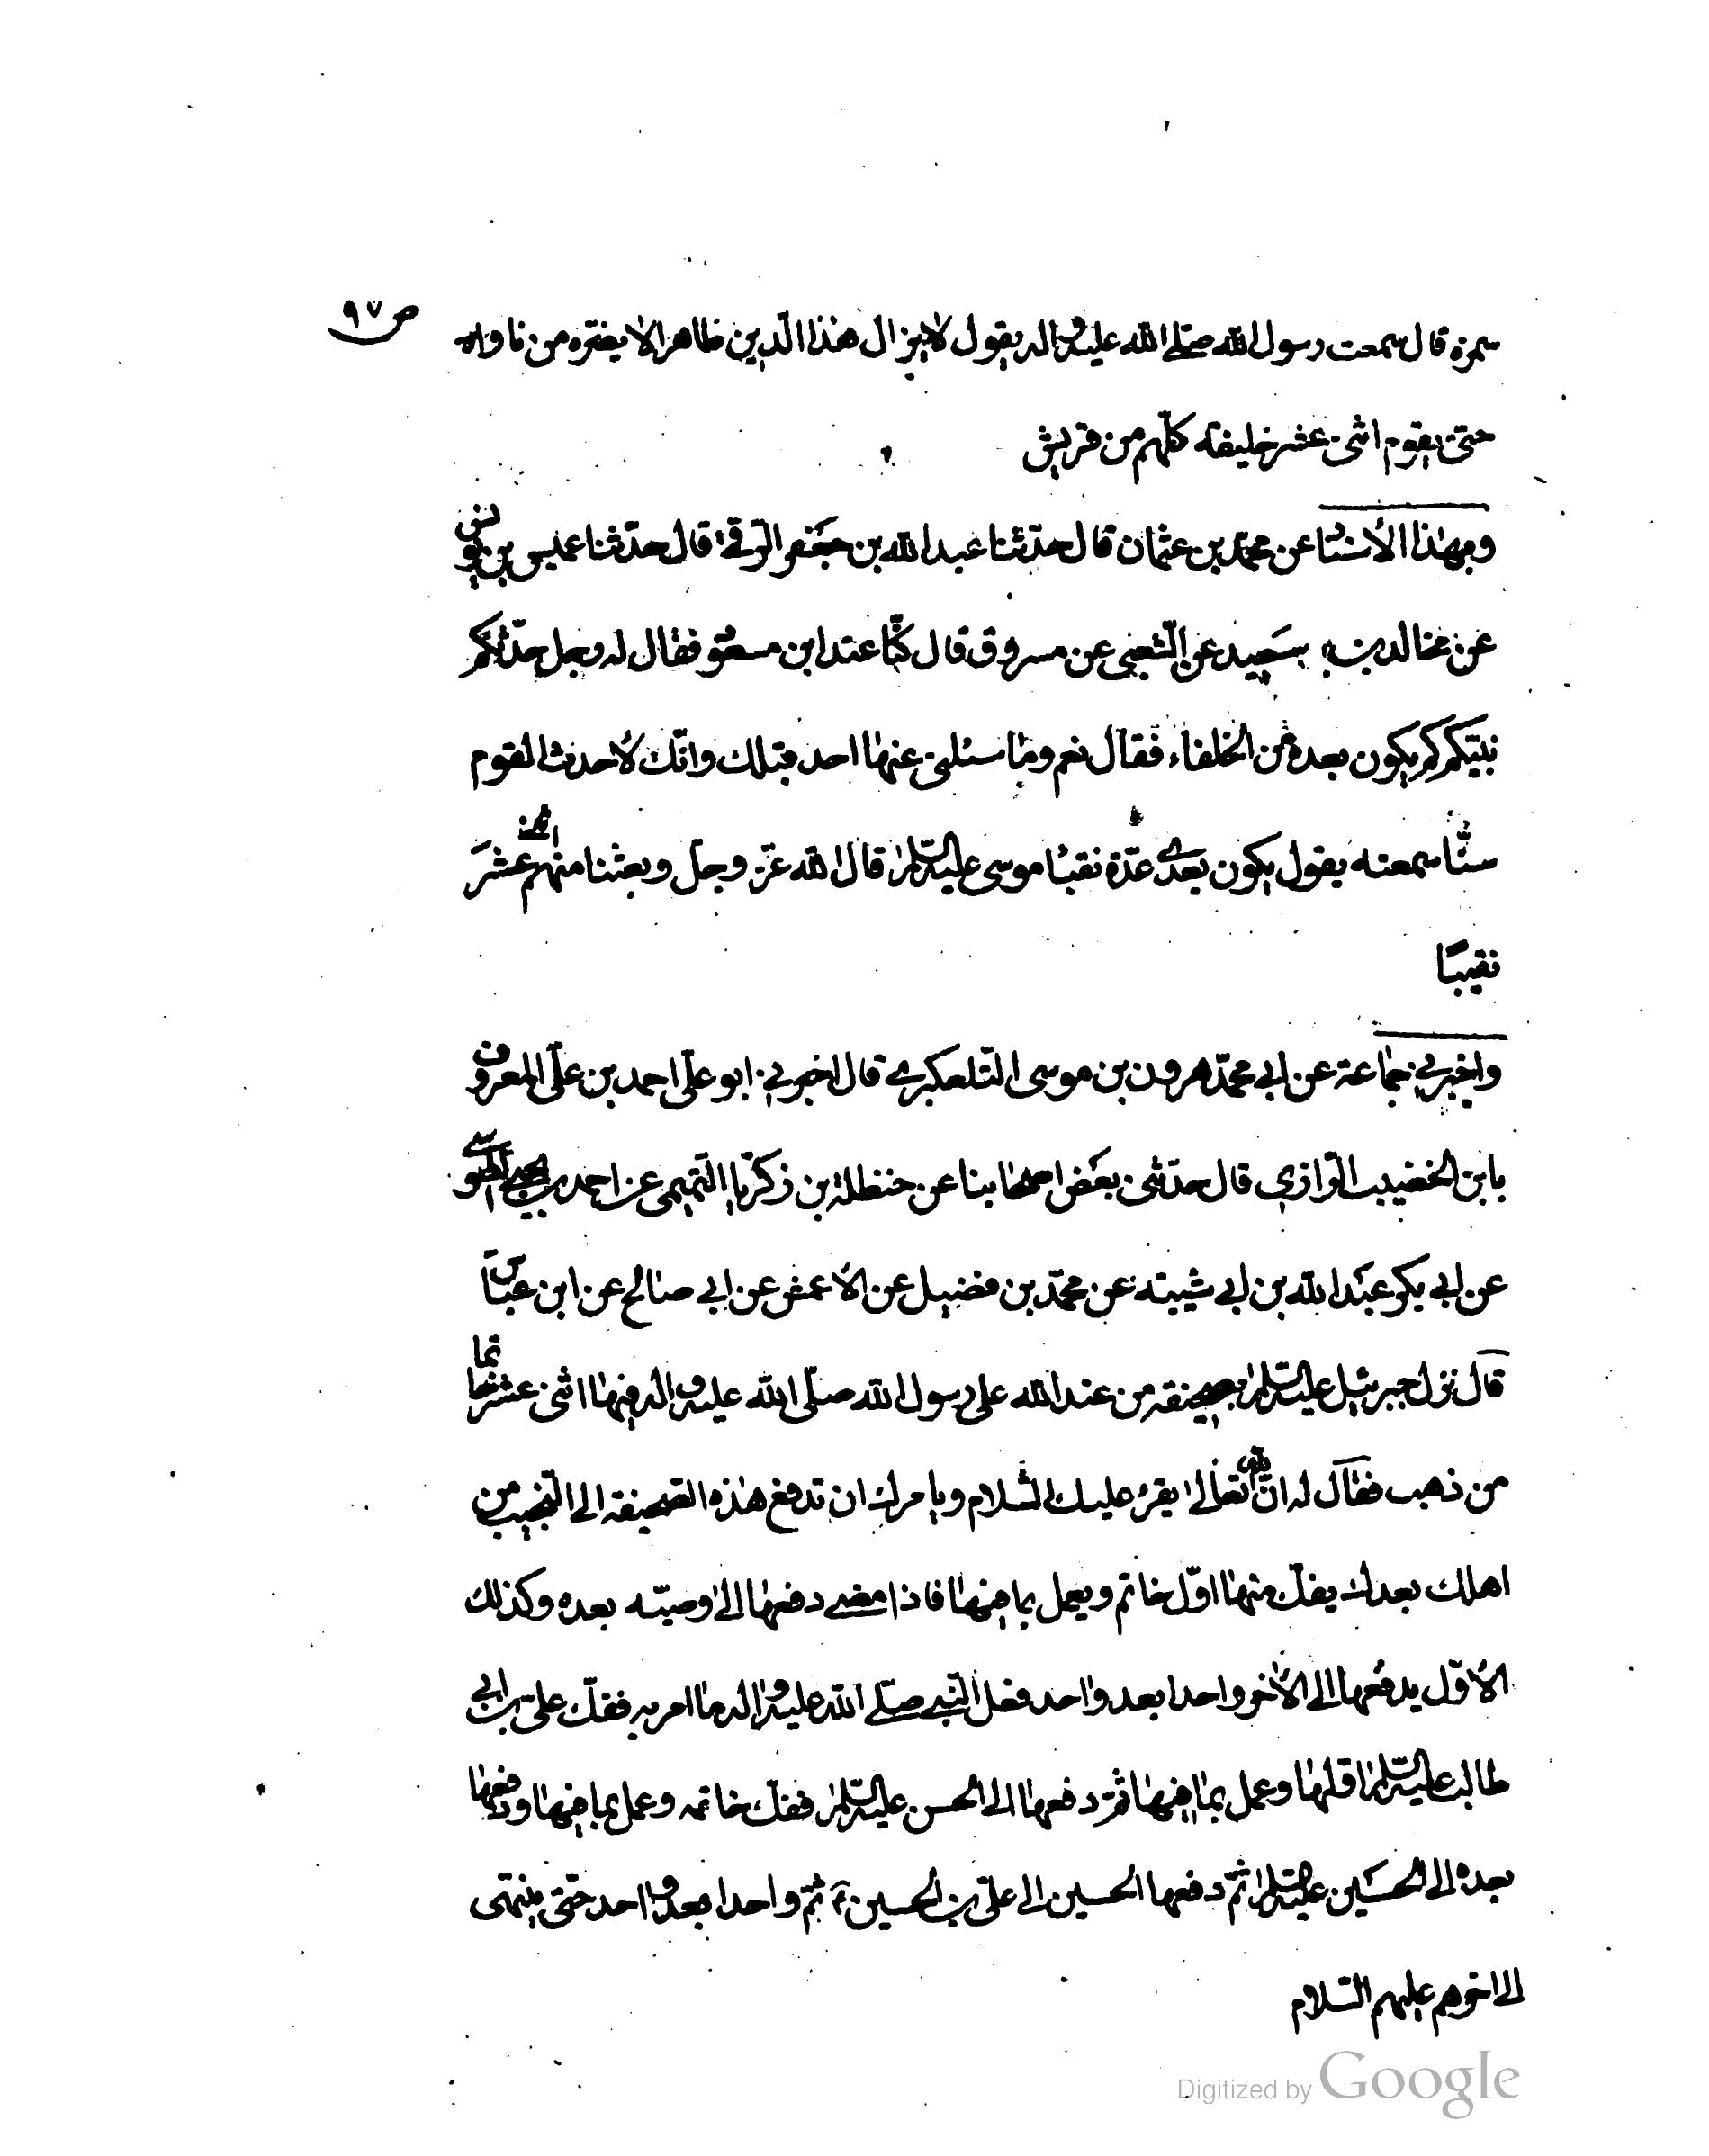 ص ٩٧
سمرة قال سمعت رسول الله صلى الله عليه واله يقول لا يزال هذا الدين ظاهرا لا يضره من ناواه
حتى يقوم اثنى عشر خليفة كلهم من قريش
وبهذا الاسناد عن محمد بن عثمان قال حدثنا عبد الله بن جعفر الرقى قال حدثنا عيسى بن يونس
عن مخالد بن سعيد عن الشعبى عن مسروق قال كنا عند ابن مسعود فقال له رجل حدثكم
نبيكم كم يكون بعده من الخلفاء فقال نعم وما سئلنى عنها احد قبلك وانك لأحدث القوم
سنا سمعته يقول يكون بعدى عدة نقباء موسى عليه السلام قال الله عز وجل وبعثنا منهم اثنى عشر
نقيبا
واخبرنى جماعة عن ابى محمد هرون بن موسى التلعكبرى قال اخبرنى ابو على احمد بن على المعروف
بابن الخضيب الرازى قال حدثنى بعض اصحابنا عن حنظلة بن زكريا التميمى عن احمد بن يحيى الطوسى
عن ابى بكر عبد الله بن ابى شيبة عن محمد بن فضيل عن الاعمش عن ابى صالح عن ابن عباس
قال نزل جبرئيل عليه السلام بصحيفة من عند الله على رسول الله صلى الله عليه واله فيها اثنى عشر خاتما
من ذهب فقال له ان الله تعالى يقرء عليك السلام ويامرك ان تدفع هذه الصحيفة الى النجيب من
اهلك بعدك يفك منها اول خاتم ويعمل بما فيها فاذا مضى دفعها الى وصيه بعده وكذلك
الاول يدفعها الى الأخر واحدا بعد واحد ففعل النبى صلى الله عليه واله ما امر به ففك على بن ابى
طالب عليه السلام اولها وعمل بما فيها ثم دفعها الى الحسن عليه السلام ففك خاتمه وعمل بما فيها ودفعها
بعده الى الحسين عليه السلام ثم دفعها الحسين الى على بن الحسين ع ثم واحدا بعد واحد حتى ينتهى
الى اخرهم عليهم السلام
Digitized by Google